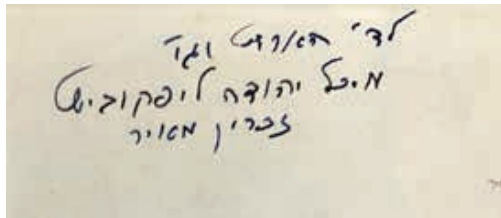 לד' הארץ וגו'
מיכל יהודה ליפקוביץ
זכרון מאיר